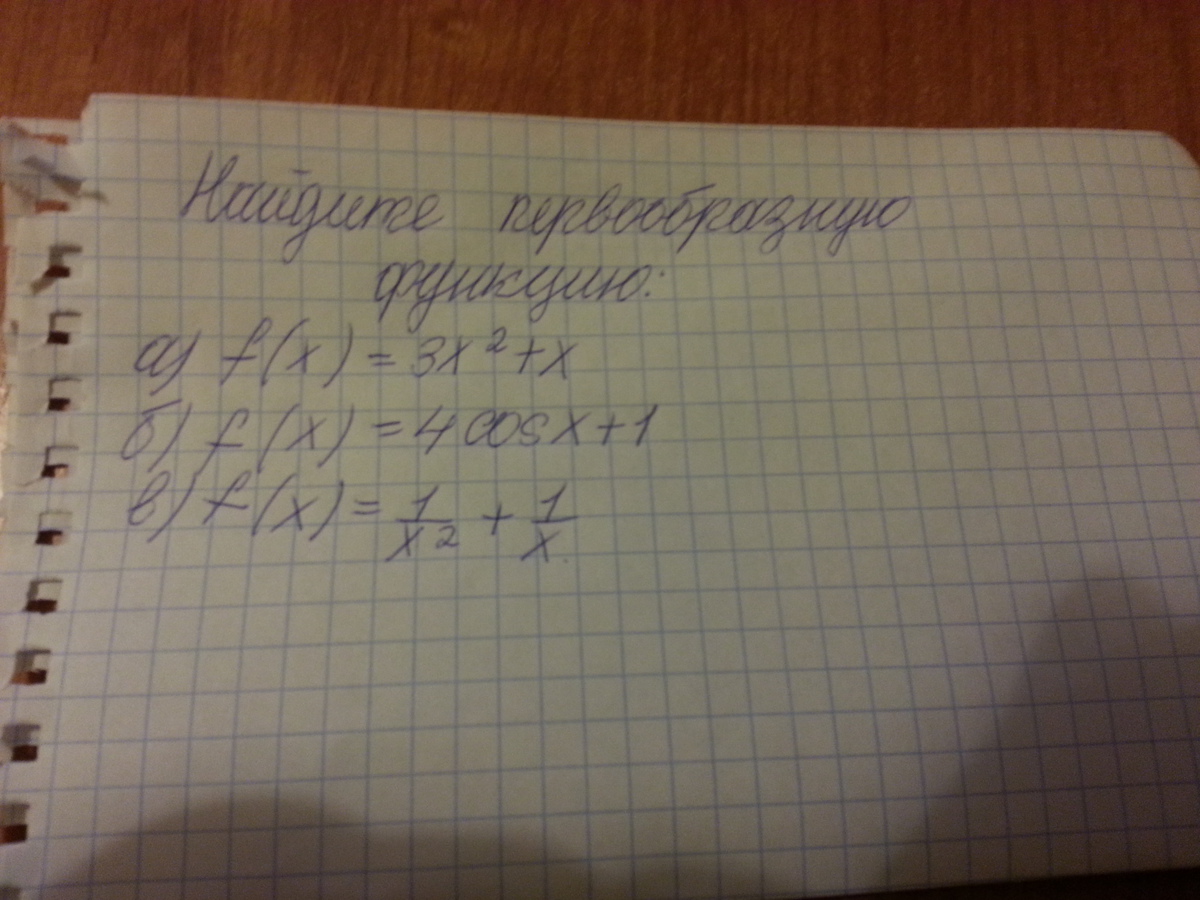 Найдите первообразную
функцию:
а) f(x) = 3x² + x
б) f(x) = 4 cosx + 1
в) f(x) = 1/x² + 1/x.